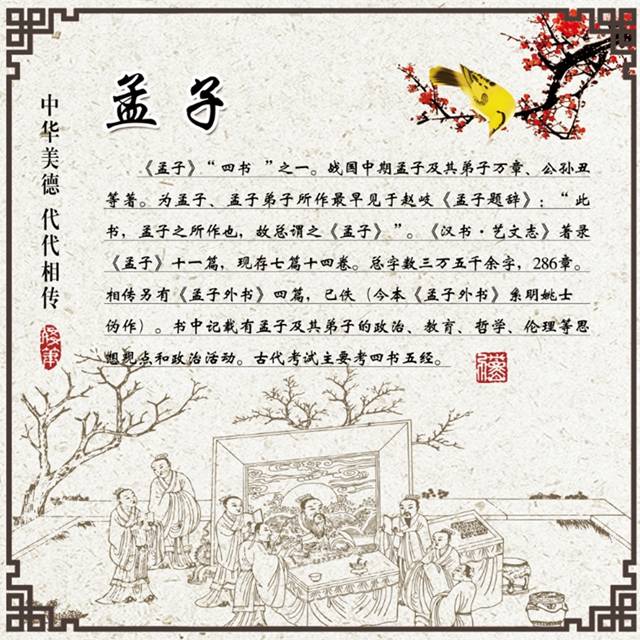 孟子
中华美德 代代相传
《孟子》“四书 ”之一。战国中期孟子及其弟子万章、公孙丑
等著。为孟子、孟子弟子所作最早见于赵岐《孟子题辞》：“此
书，孟子之所作也，故总谓之《孟子》”。《汉书·艺文志》著录
《孟子》十一篇，现存七篇十四卷。总字数三万五千余字，286章。
相传另有《孟子外书》四篇，已佚（今本《孟子外书》系明姚士
伪作）。书中记载有孟子及其弟子的政治、教育、哲学、伦理等思
想观点和政治活动。古代考试主要考四书五经。